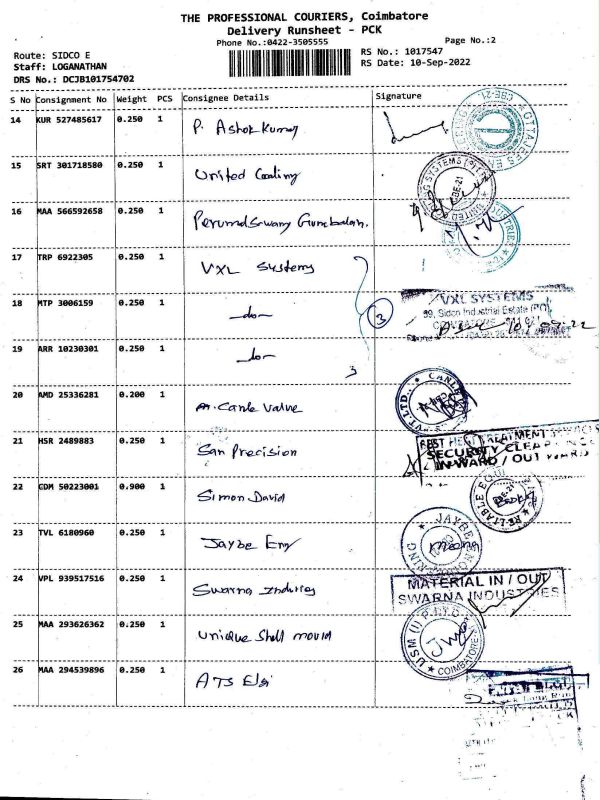 THE PROFESSIONAL COURIERS, Coimbatore
Delivery Runsheet - PCK
Phone No.:0422-3505555
Page No.:2
Route: SIDCO E
RS No.: 1017547
Staff: LOGANATHAN
RS Date: 10-Sep-2022
DRS No.: DCJB101754702
S No Consignment No Weight PCS Consignee Details Signature
14 KUR 527485617 0.250 1 P. Ashok Kumar
15 SRT 301718580 0.250 1 United Cooling
16 MAA 566592658 0.250 1
17 TRP 6922305 0.250 1 VXL Systems
18 MTP 3006159 0.250 1 -do-
3
VXL SYSTEMS
99, Sidco Industrial Estate (PO)
19 ARR 10230301 0.250 1 -do-
3
20 AMD 25336281 0.200 1 Valve
21 HSR 2489883 0.250 1 San Precision
BEST HEAT TREATMENT SERVICES
SECURITY CLEARANCE
INWARD / OUT WARD
22 CDM 50223001 0.900 1 Simon David
23 TVL 6180960 0.250 1 Jaybe Eng
24 VPL 939517516 0.250 1 Swarna Indusries
MATERIAL IN / OUT
SWARNA INDUSTRIES
25 MAA 293626362 0.250 1 Unique Shell mould
USM (I) P LTD
COIMBATORE
26 MAA 294539896 0.250 1 ATS Elgi